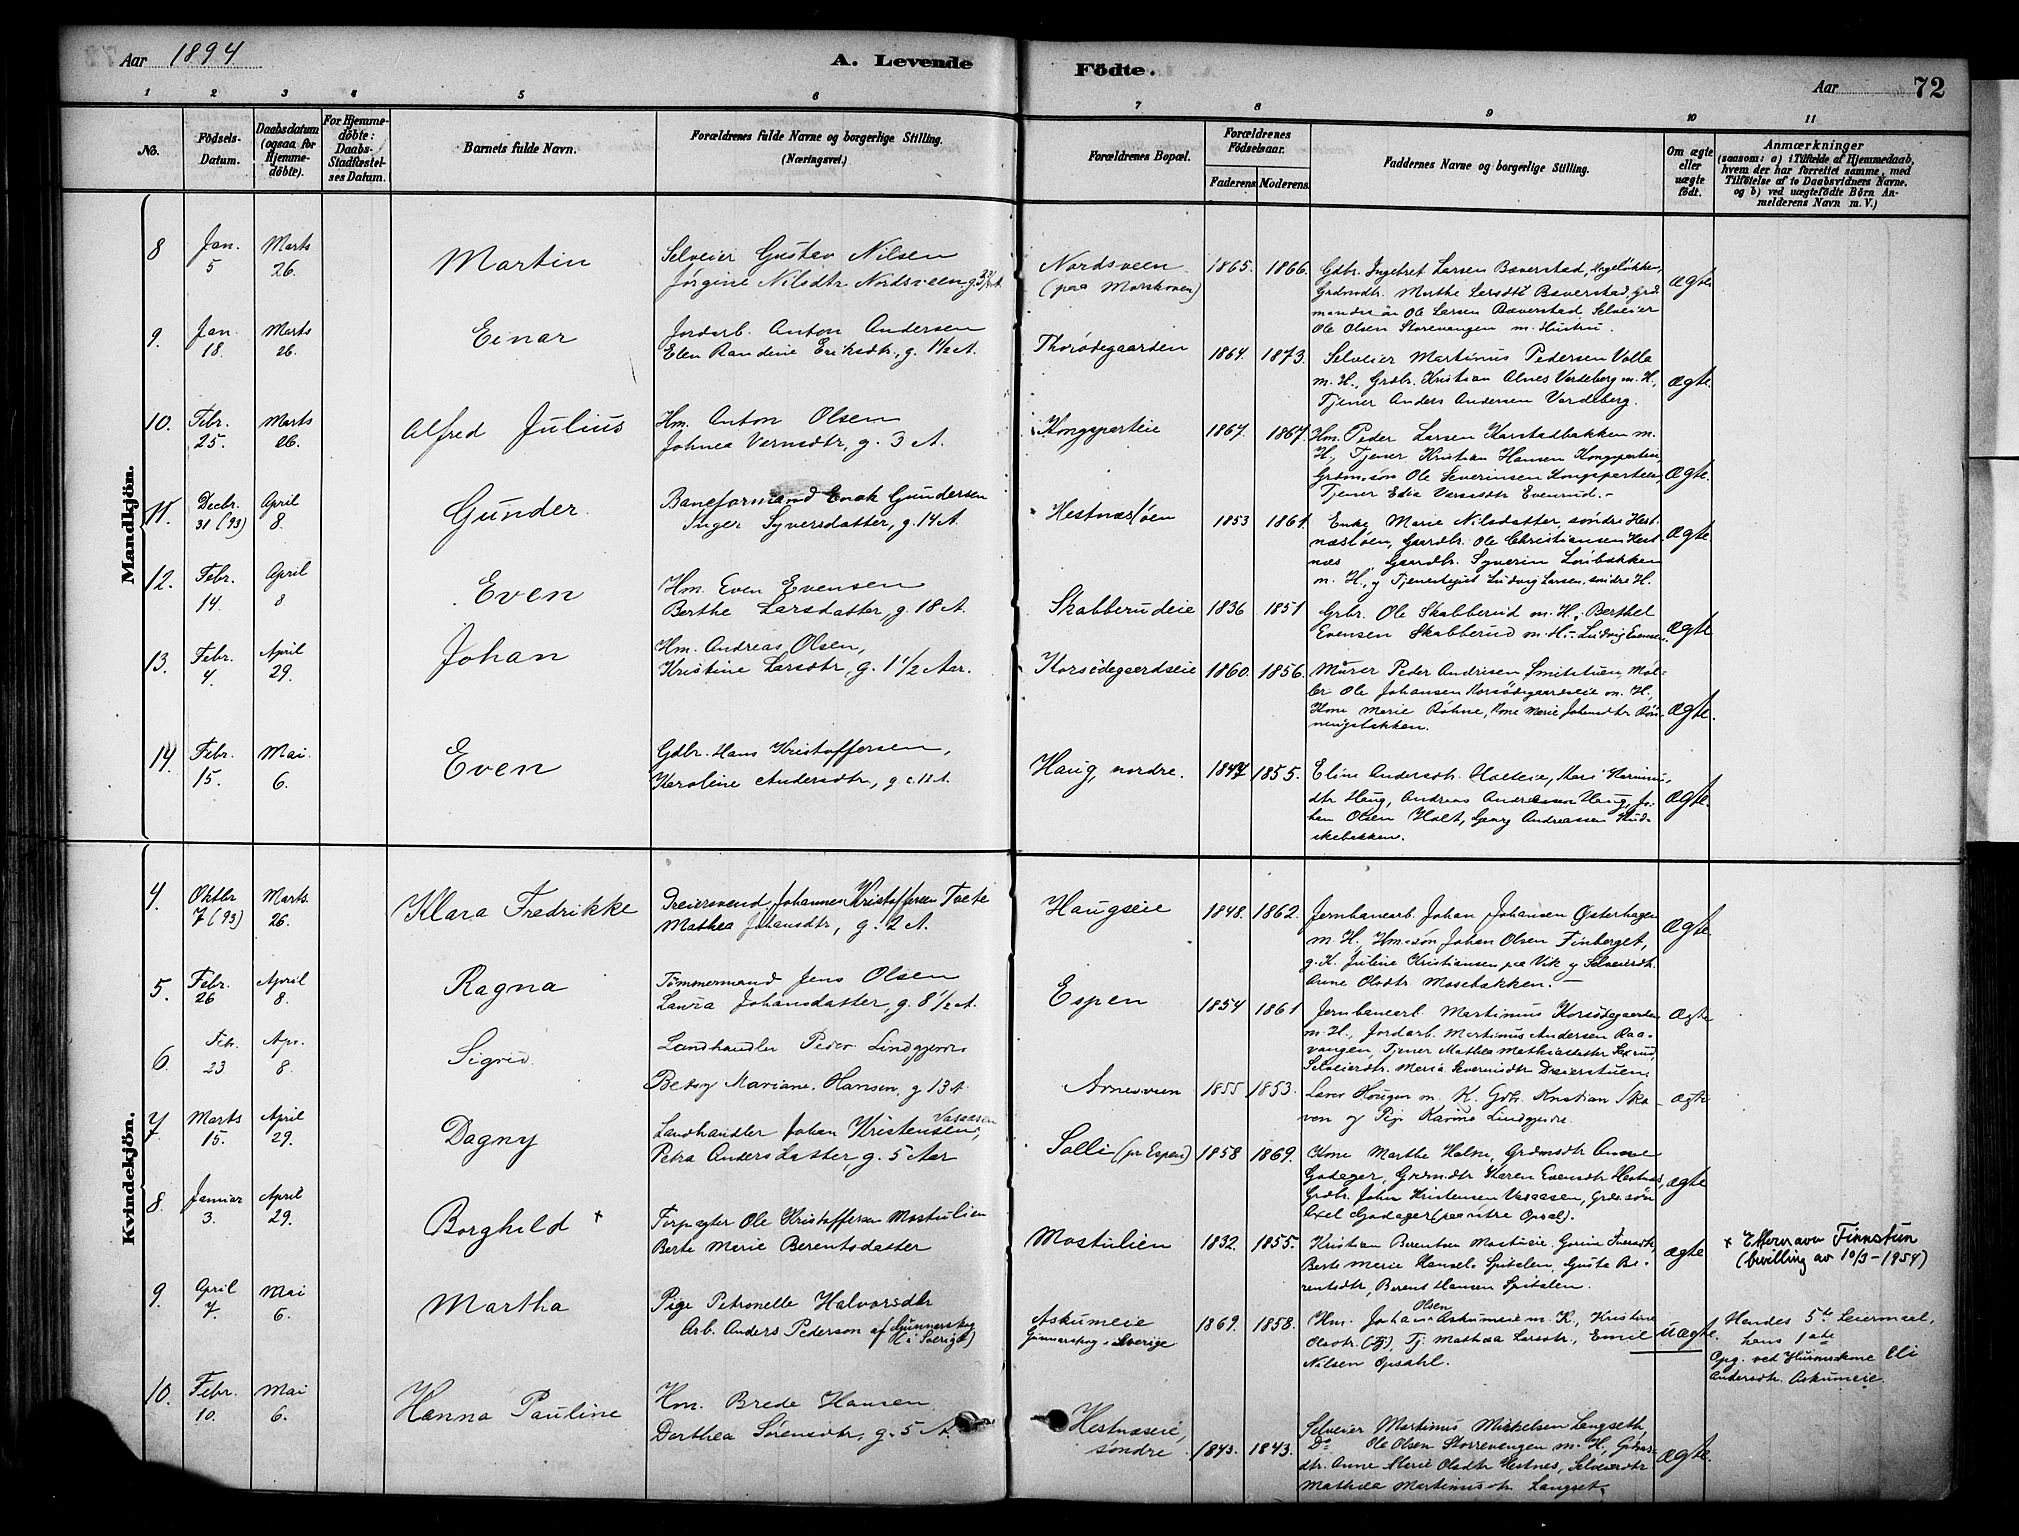 Aar 1894
A. Levende
Födte.
Aar 72
1 2 3 4 5 6 7 8 9 10 11
No.
Födsels-Datum.
Daabsdatum (ogsaa for Hjemmedöbte).
For Hjemmedöbte: Daabs-Stadfæstelses Datum.
Barnets fulde Navn.
Forældrenes fulde Navne og borgerlige Stilling. (Næringsvei.)
Forældrenes Bopæl.
Forældrenes Födselsaar.
Faderens Moderens
Faddernes Navne og borgerlige Stilling.
Om ægte eller uægte födt.
Anmærkninger
(saasom: a) i Tilfælde af Hjemmedaab,
hvem der har forrettet samme, med
Tilföielse af to Daabsvidners Navne.
og b) ved uægtefödte Börn An-
melderens Navn m. V.)
Mandkjön.
8 Jan. 5 Marts 26. Martin
Selveier Gustav Nilsen
Jørgine Nilsdtr Nordsveen
Nordsveen (paa Morskoven) 1865. 1866.
Gdbr. Ingebret Larsen Bæverstad,
Grdmdtr. Marthe Larsdtr Bæverstad, Grd
mandssön Ole Larsen Bæverstad, Selveier
Ole Olsen Storevangen m. Hustru.
ægte
9. Jan. 18. Marts 26. Einar
Jordarb. Anton Andersen
Elen Randine Eriksdtr, g. 1½ A.
Thorödegaarden 1864. 1873.
Selveier Martinus Pedersen Volla
m. H., Grdbr. Kristian Alnes Vardeberg m. H.,
Tjener Anders Andersen Vardeberg.
ægte
10. Febr. 25. Marts 26. Alfred Julius
Hm. Anton Olsen
Johnea Vernsdtr, g. 3 A.
Kongsparteie 1867. 1867.
Hm. Peder Larsen Karstadbakken m.
H., Tjener Kristian Hansen Kongspartein,
Grdm.søn Ole Severinsen Kongspartein,
Tjener Edia Vernsdtr Evenrud.
ægte.
11. Decbr. 31 (93) April 8. Gunder.
Baneformand Enok Gundersen
Inger Syversdatter, g. 14 A.
Hestnæsløen 1853 1861
Enke Marie Nilsdatter, søndre Hest
næsløen, Gaardbr. Ole Christiansen Hest
næs, Gaardbr. Syverin Lönbakken
m. H., og Ludvig Larsen, søndre H.
ægte
12. Febr. 14. April 8 Even
Hm. Even Evensen
Berthe Larsdatter, g. 18 A.
Skabberudeie 1836 1851
Grbr. Ole Skabberud m. H., Berthel
Evensen Skabberud m. H. Ludvig Evensen.
ægte
13. Febr. 4. April 29. Johan
Hm. Andreas Olsen,
Kristine Larsdtr, g. 1½ Aar.
Korsödegaardseie 1860. 1856.
Murer Peder Andersen Smitstuen, Ma-
ler Ole Johansen Korsödegaardseie m. H.,
Kone Marie Böhne, Kone Marie Johansdtr Rön-
ningsbakken.
ægte.
14. Febr. 15. Mai 6. Even
Gdbr. Hans Kristoffersen,
Karoline Andersdtr, g. c. 11 A.
Haug, nordre. 1847 1855.
Eline Andersdtr. Holteie,
dtr Haug, Andreas Andreassen Haug, Jo-
han Olsen Holt, Georg Andreassen
ægte.
Kvindekjön.
4. Oktbr 7 (93) Marts. 26. Klara Fredrikke
Dreiersvend Johannes Kristoffersen Tvete
Mathea Johansdtr, g. 2 A.
Haugseie 1848. 1862.
Jernbanearb. Johan Johansen Østerhagen
m. H., Hm.søn Johan Olsen Finberget,
g. K. Juline Kristiansen paa Vik og Selveierdtr.
Anne Olsdtr Mosebakken.
ægte
5. Febr. 26 April 8. Ragna
Tömmermand Jens Olsen
Laura Johansdatter, g. 8½ A.
Espen 1854 1861
Jernbanearb. Martinus Korsödegaarden
m. H., Jordarb. Martinus Andersen Raa-
vangen, Tjener Mathea Mathiasdatter Sexrud,
Selveierdtr. Maria Severinsdtr Dreierstuen.
ægte
6. Feb. 23 Apr. 8. Sigrid
Landhandler Peder Lindgjerdes
Betsy Mariane Hansen, g 13 A
Arnesveen 1855 1853.
Lærer Hougen m. K. Gdbr. Kristian Ska-
ven og Pige Karine Lindgjerde.
ægte
7 Marts 15. April 29. Dagny
Landhandler Johan Kristensen Vasaasen,
Petra Andersdatter, g. 5 Aar
Solli (pr Espen) 1858 1869.
Kone Marthe Holm, Grdmsdtr Anne
Godager, Grdmdtr Karen Evensdtr Hestnæs,
Grdbr. John Kristensen Vasaasen, Grdm.søn
Axel Godager (paa ntre Opsal).
ægte
8. Januar 3. April 29. Borghild +
Forpagter Ole Kristoffersen Mostulien
Berte Marie Berentsdatter
Mostulien 1832. 1855.
Kristian Berentsen Mostueie
Berte Marie Hansels Spitalen, Gusta Be-
rentsdtr, Berent Hansen Spitalen.
ægte
+ Efternavn Finnstun
(bevilling av 10/3-1954)
9. April 7. Mai 6. Martha
Pige Petronelle Halvorsdtr
Arb. Anders Pederson af Gunnerskog (i Sverige)
Askumeie
Gunnerskog i Sverige 1869. 1858.
Hm. Johan Olsen Askumeie m. K., Kristine
Olsdtr. Tj. Mathea Larsdtr, Emil
Nilsen Opsahl.
uægte.
Hendes 5te Leiermaal,
hans 1ste
Opg. ved Husmskone Eli
Andersdtr. Askumeie.
10. Febr. 10. Mai 6. Hanna Pauline
Hm. Brede Hansen,
Dorthea Sörensdtr, g. 5 A.
Hestnæseie, søndre. 1843. 1843.
Selveier Martinus Mikkelsen Langseth,
Do Ole Olsen Storrevangen m. H., Grdms-
dtr. Anne Marie Olsdtr Hestnes, Selveierdtr
Mathea Martinusdtr Langset.
ægte.